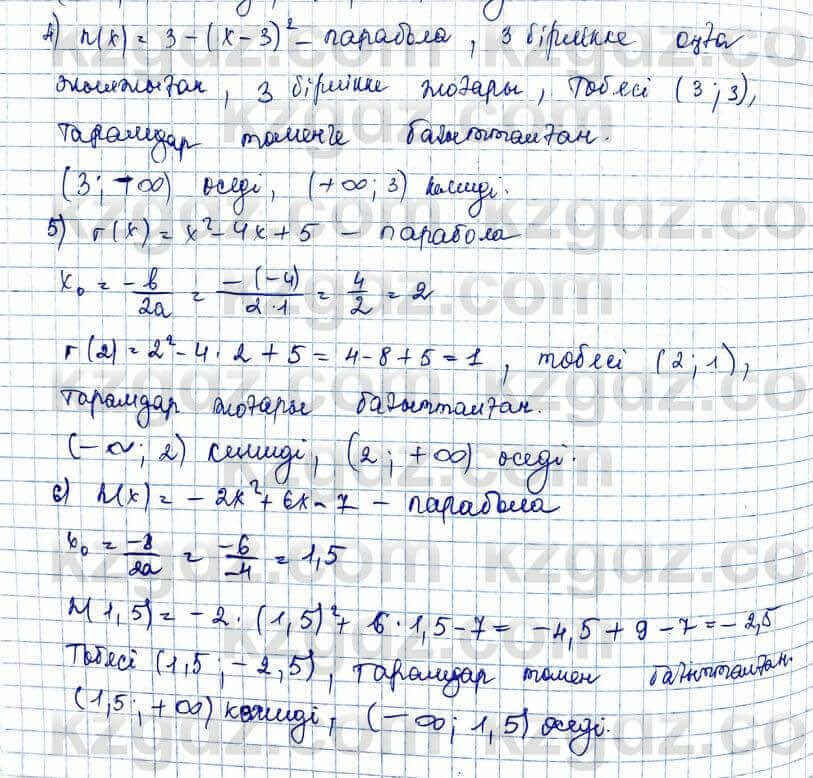 4) h(x) = 3 - (x - 3)² - парабола, 3 бірлікке оңға
жылжыған, 3 бірлікке жоғары, төбесі (3; 3),
тармақтар төменге бағытталған.
(3; +∞) өседі, (+∞; 3) кемиді.
5) r(x) = x² - 4x + 5 - парабола
x₀ = -b/2a = -(-4)/2·1 = 4/2 = 2
r(2) = 2² - 4 · 2 + 5 = 4 - 8 + 5 = 1, төбесі (2; 1),
тармақтар жоғары бағытталған.
(-∞; 2) кемиді, (2; +∞) өседі.
6) h(x) = -2x² + 6x - 7 - парабола
x₀ = -b/2a = -6/-4 = 1,5
h(1,5) = -2 · (1,5)² + 6 · 1,5 - 7 = -4,5 + 9 - 7 = -2,5
Төбесі (1,5; -2,5), тармақтар төмен бағытталған.
(1,5; +∞) кемиді, (-∞; 1,5) өседі.
kzgdz.com